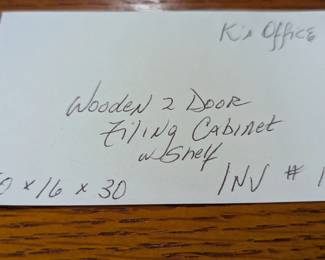 K's Office
Wooden 2 Door
Filing Cabinet
w Shelf
0 x 16 x 30 INV # 1